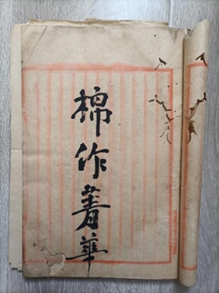 棉作菁華